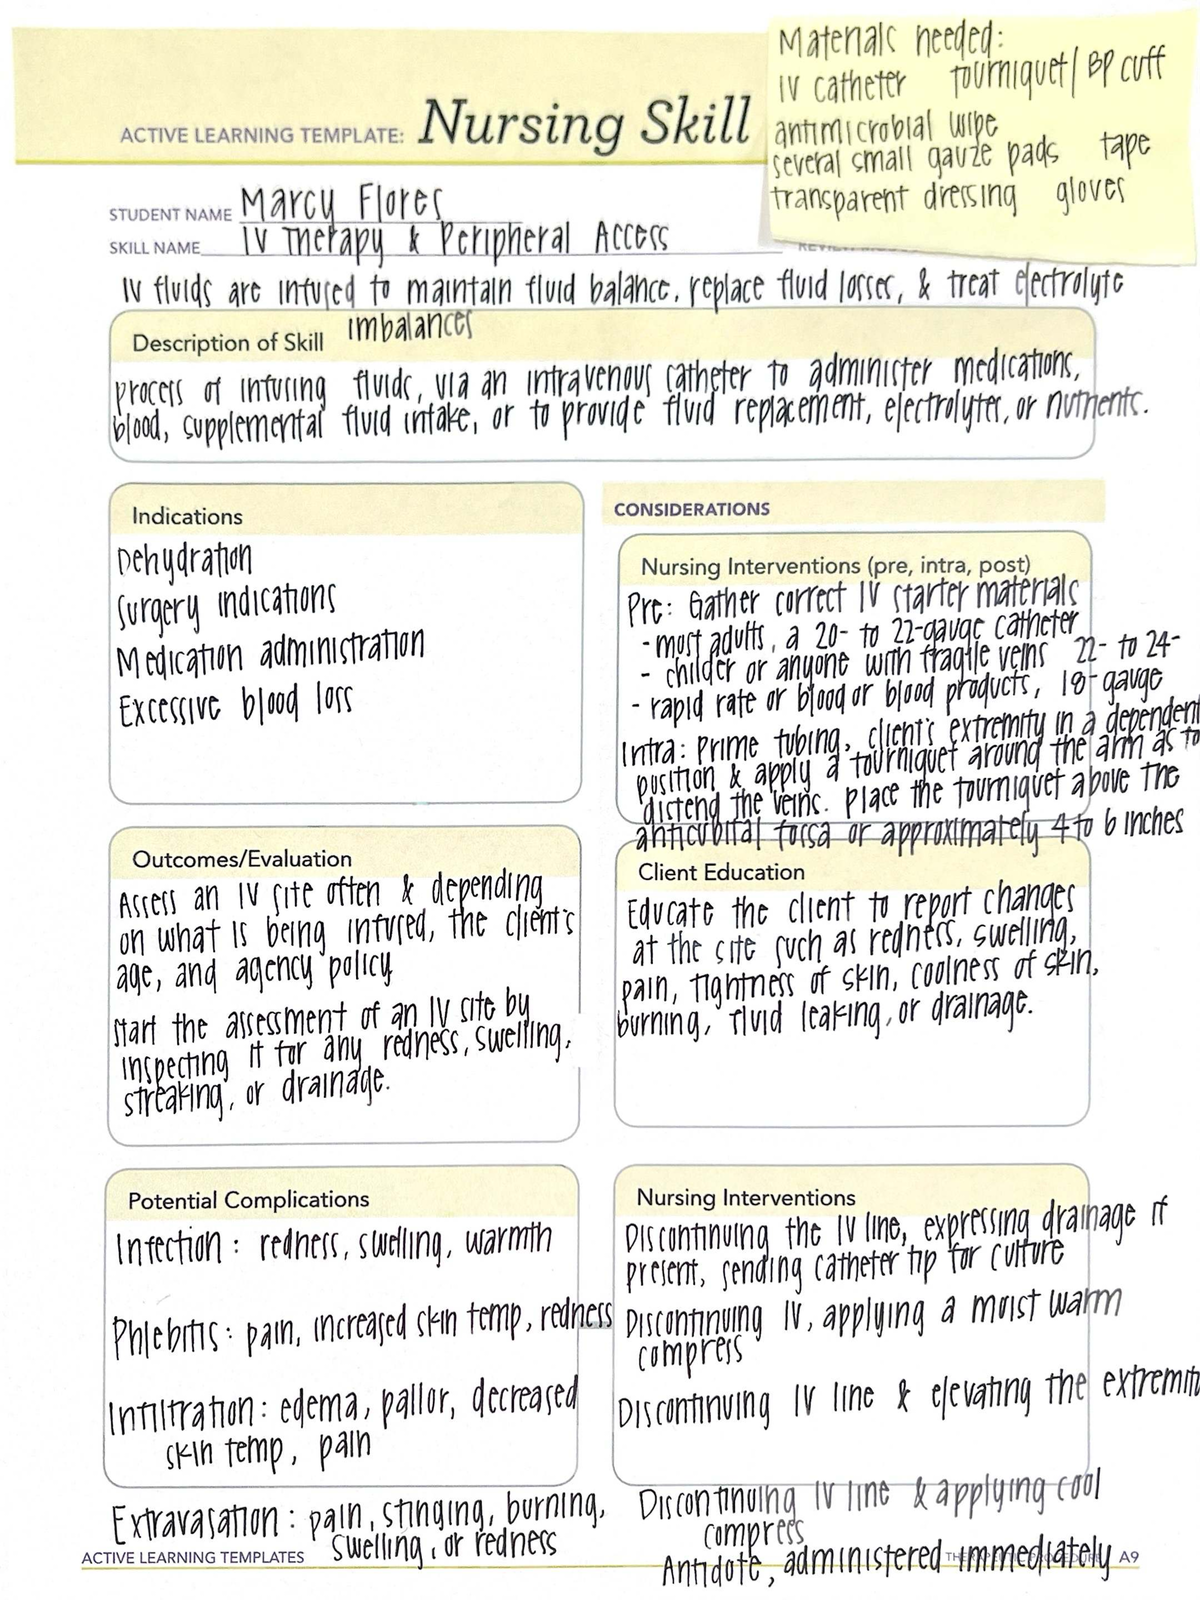 Materials needed:
IV catheter tourniquet/BP cuff
antimicrobial wipe
several small gauze pads tape
transparent dressing gloves
ACTIVE LEARNING TEMPLATE: Nursing Skill
STUDENT NAME Marcy Flores
SKILL NAME IV Therapy & Peripheral Access
IV fluids are infused to maintain fluid balance, replace fluid losses, & treat electrolyte
imbalances
Description of Skill
process of infusing fluids, via an intravenous catheter to administer medications,
blood, supplemental fluid intake, or to provide fluid replacement, electrolytes, or nutrients.
Indications
Dehydration
Surgery indications
Medication administration
Excessive blood loss
CONSIDERATIONS
Nursing Interventions (pre, intra, post)
Pre: Gather correct IV starter materials
- most adults, a 20- to 22-gauge catheter
- childer or anyone with fragile veins 22- to 24-
- rapid rate or blood or blood products, 18-gauge
Intra: Prime tubing, client's extremity in a dependent
position & apply a tourniquet around the arm as to
distend the veins. Place the tourniquet above the
anticubital fossa or approximately 4 to 6 inches
Outcomes/Evaluation
Assess an IV site often & depending
on what is being infused, the client's
age, and agency policy
Start the assessment of an IV site by
inspecting it for any redness, swelling,
streaking, or drainage.
Client Education
Educate the client to report changes
at the site such as redness, swelling,
pain, tightness of skin, coolness of skin,
burning, fluid leaking, or drainage.
Potential Complications
Infection: redness, swelling, warmth
Phlebitis: pain, increased skin temp, redness
Infiltration: edema, pallor, decreased
skin temp, pain
Extravasation: pain, stinging, burning,
swelling, or redness
Nursing Interventions
Discontinuing the IV line, expressing drainage if
present, sending catheter tip for culture
Discontinuing IV, applying a moist warm
compress
Discontinuing IV line & elevating the
Discontinuing IV line & applying cool
compress
Antidote, administered immediately
ACTIVE LEARNING TEMPLATES
THERAPEUTIC PROCEDURE A9